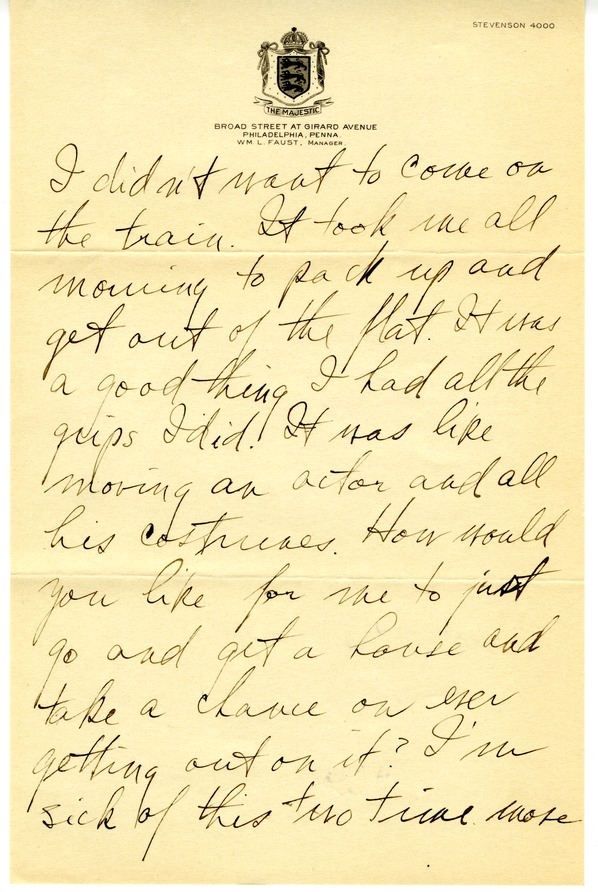 STEVENSON 4000
THE MAJESTIC
BROAD STREET AT GIRARD AVENUE
PHILADELPHIA, PENNA.
WM. L. FAUST, MANAGER.
I didn't want to come on
the train. It took me all
morning to pack up and
get out of the flat. It was
a good thing I had all the
grips I did! It was like
moving an actor and all
his costumes. How would
you like for me to just
go and get a house and
take a chance on ever
getting out on it? I'm
sick of this two time move